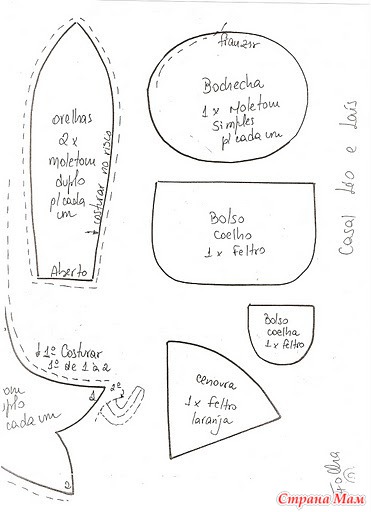 orelhas
2 x
moletom
duplo
p/ cada
um
costurar no risco
Aberto
franzir
Bochecha
1 x Moletom
Simples
p/ cada um
Casal Léo e Laís
Bolso
Coelho
1 x feltro
Bolso
coelha
1 x feltro
cenoura
1 x feltro
laranja
1º Costurar
1º de 1 à 2
2º
1
2
cada um
Folha
Страна Мам